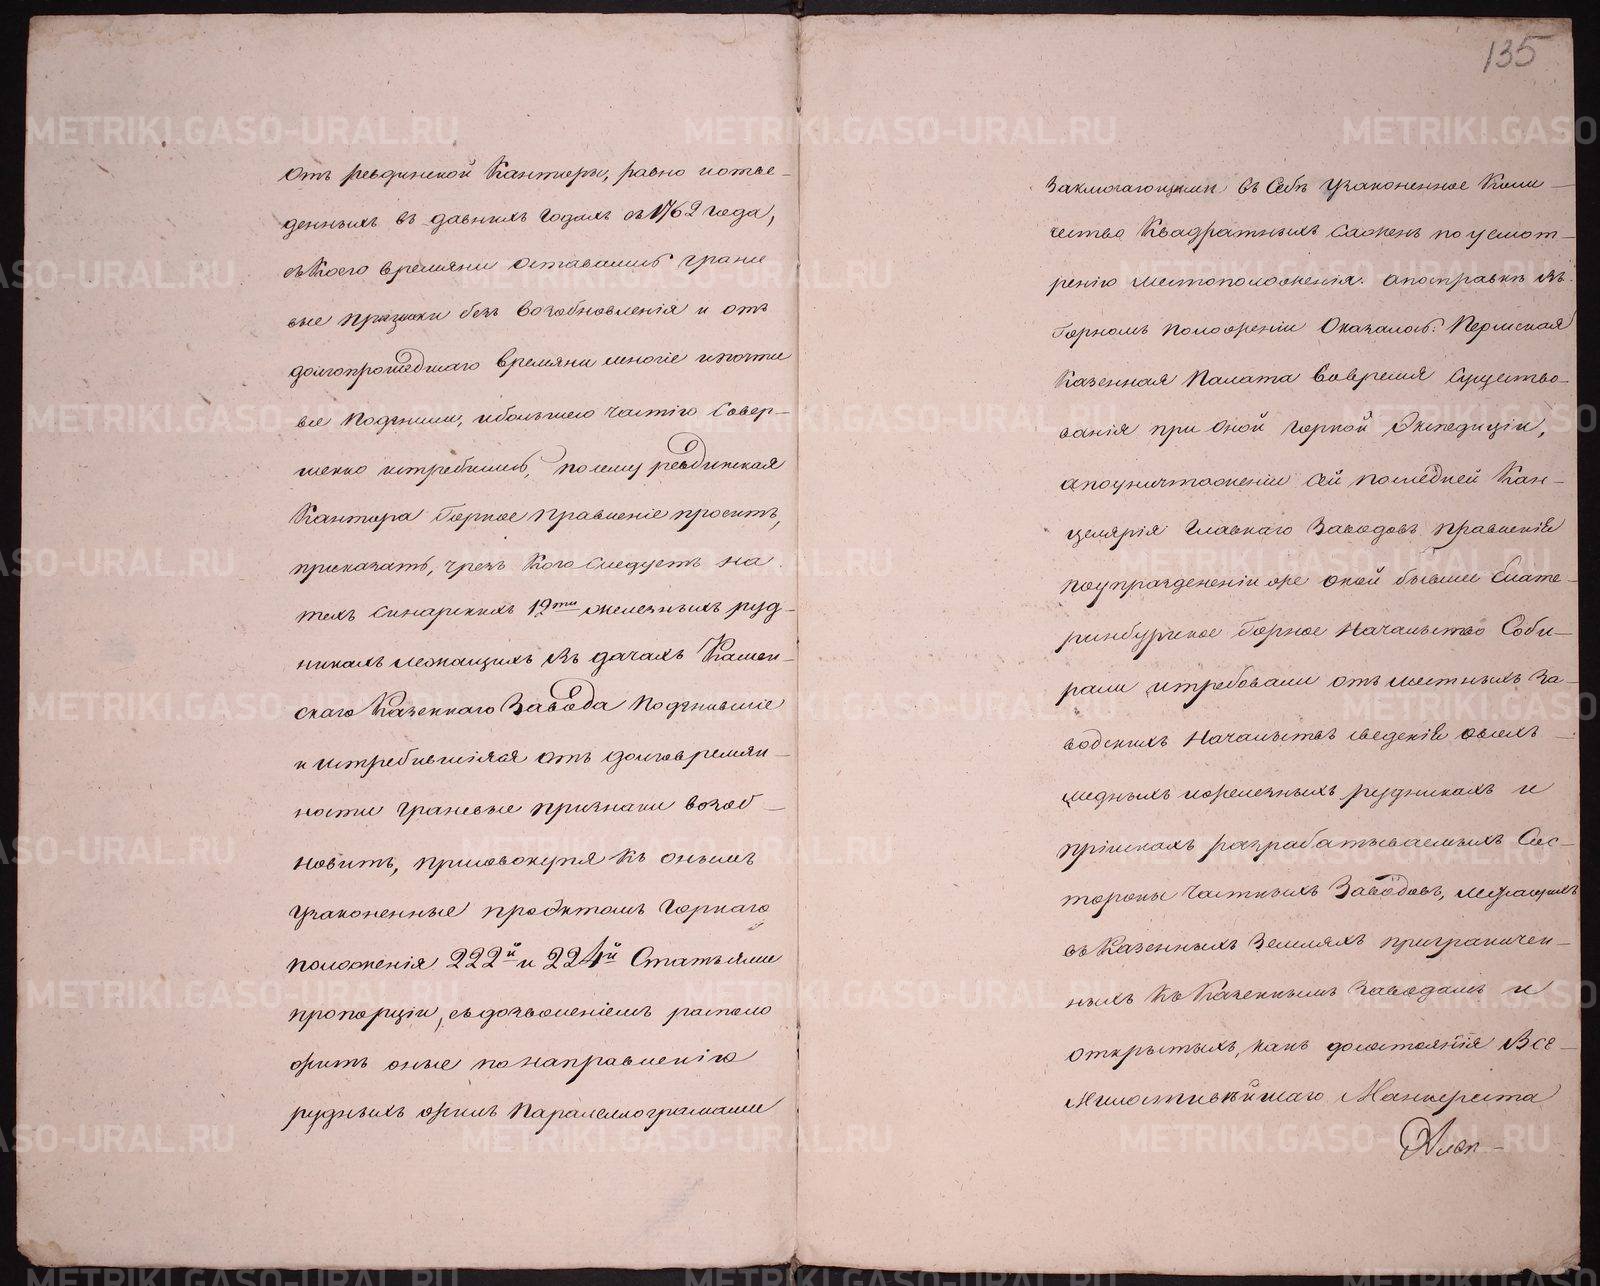 135
отъ ревдинской Канторы, равно иотве-
денныхъ въ давнихъ годахъ съ 1762 года,
съ коего времяни оставались грани
вые признаки безъ возобновленія и отъ
долгопрошедшаго времяни многіе ипочти
все подгнили, ибольшею частію совер-
шенно истребились, почему ревдинская
Кантора Горное правленіе проситъ,
приказать, чрезъ кого следуетъ на
техъ синарскихъ 12ти железныхъ руд-
никахъ лежащихъ въ дачахъ Камен-
скаго Казеннаго Завода подгнившіе
и истребившіяся отъ долговремян-
ности граневые признаки возоб-
новить, присовокупя къ онымъ
узаконенные проэктомъ Горнаго
положенія 222й и 224й Статьями
пропорціи, съдозволеніемъ располо
жить оные понаправленію
рудныхъ жилъ паралелограмами
Заключающими въ Себѣ узаконенное Коли-
чество Квадратныхъ саженъ поусмот-
ренію местоположенія. апосправкѣ въ
Горномъ положеніи Оказалось: Пермская
Казенная Палата вовремя существо-
ванія при Оной горной Экспедиціи,
апоуничтоженіи сей последней Кан-
целярія Главнаго Заводовъ правленія
поупразднении же оной бывшее Екате-
ринбургское Горное Начальство Соби-
рали итребовали отъ местныхъ За-
водскихъ Начальствъ сведенія овсехъ
медныхъ ижелезныхъ рудникахъ и
пріискахъ разрабатываемыхъ Сос-
тороны частныхъ Заводовъ, лежащихъ
въ Казенныхъ Земляхъ приграничен-
ныхъ къ Казеннымъ Заводамъ и
открытыхъ, какъ досостоянія Все-
Милостивѣйшаго Манифеста
METRIKI.GASO-URAL.RU